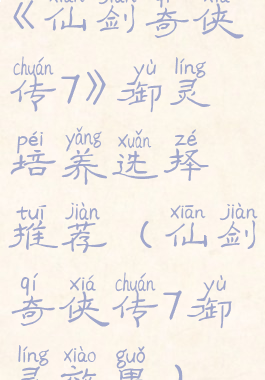 《仙剑奇侠
chuán yù líng
传7》御灵
péi yǎng xuǎn zé
培养选择
tuī jiàn xiān jiàn
推荐（仙剑
qí xiá chuán yù
奇侠传7御
líng xiào guǒ
灵效果）